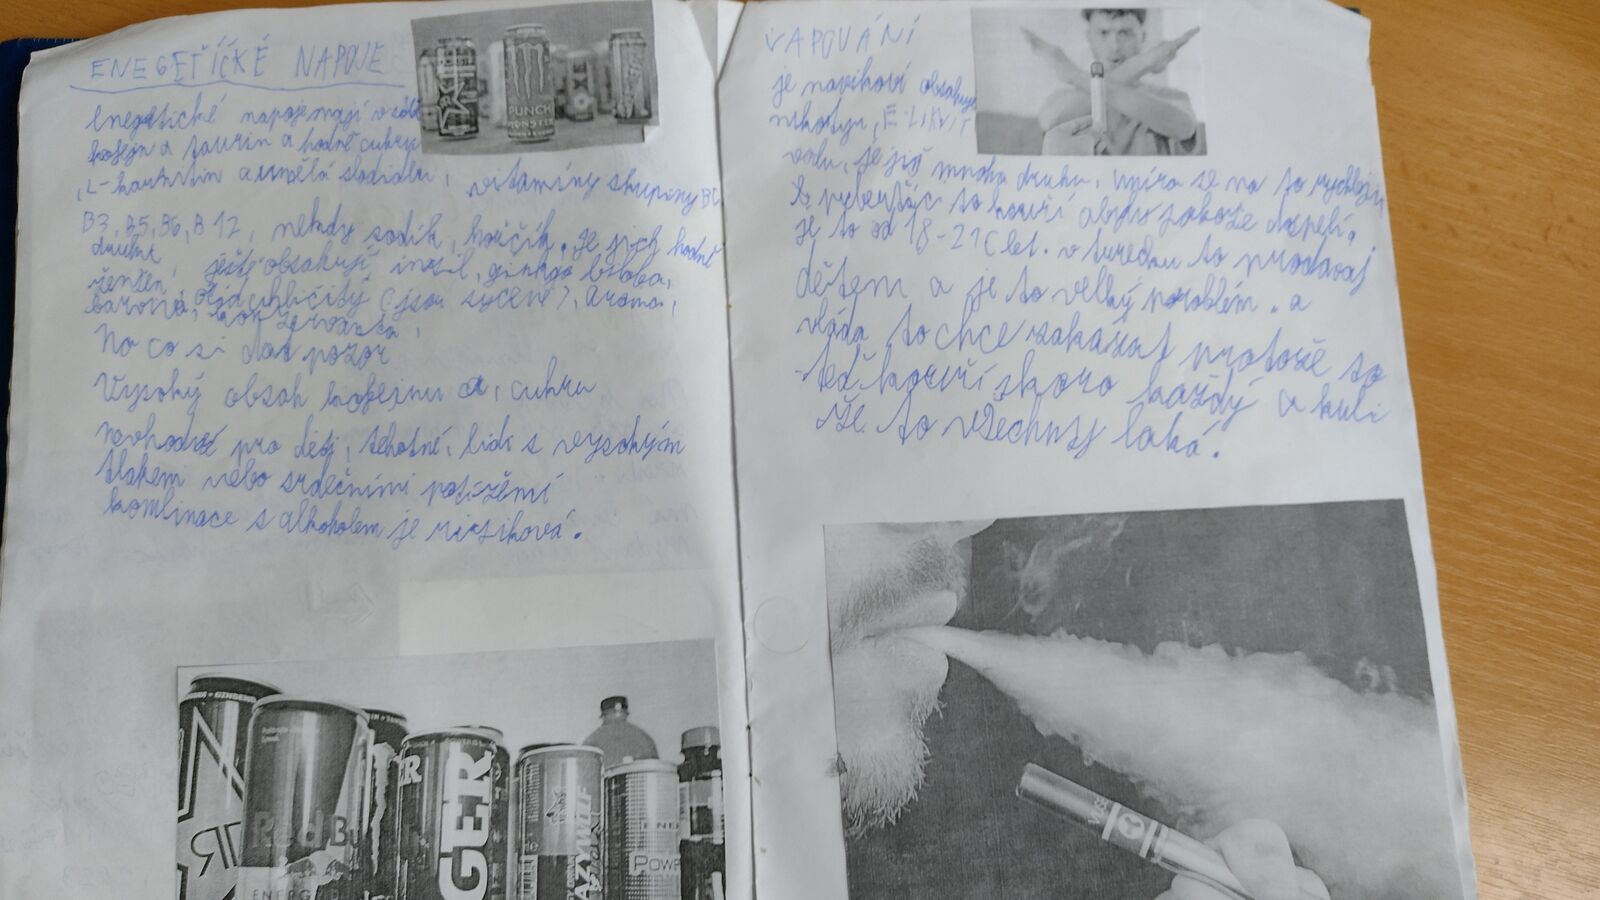 ENEGETICKÉ NAPOJE
Enegetické napoje mají v sobě
kofejn a taurin a hodně cukru
, L-karnitin a umělá sladidla, vitamíny skupiny B
B3, B5, B6, B12, nekdy sodík, hořčík. Je jich hodně
druhů
, ještě obsahují, inzil, ginkgo biloba,
ženšen
barviva, oxid uhličitý (jsou sycené), aroma,
konzervanta,
Na co si dat pozor
Vysoký obsah kofejnu a, cukru
nevhodné pro děti, tehotné, lidi s vysokým
tlakem nebo srdečními potížemi
kombinace s alkoholem je riziková.
PUNCH
MONSTER
Red Bu
ENERG
GER
AZYWOLF
ENE
POW
VAPOVÁNÍ
je navikoví obsahuje
nikotyn, E-LIKVIT
vodu, je jich mnoho druhu, umíra se na to rychleji
to kouří abysi dospelí,
je to od 18-21 let. v turecku to prodavaj
dětem a je to velký problém. a
vláda to chce zakázat protože to
teď kouří skoro každý a kuli
že to všechny láká.